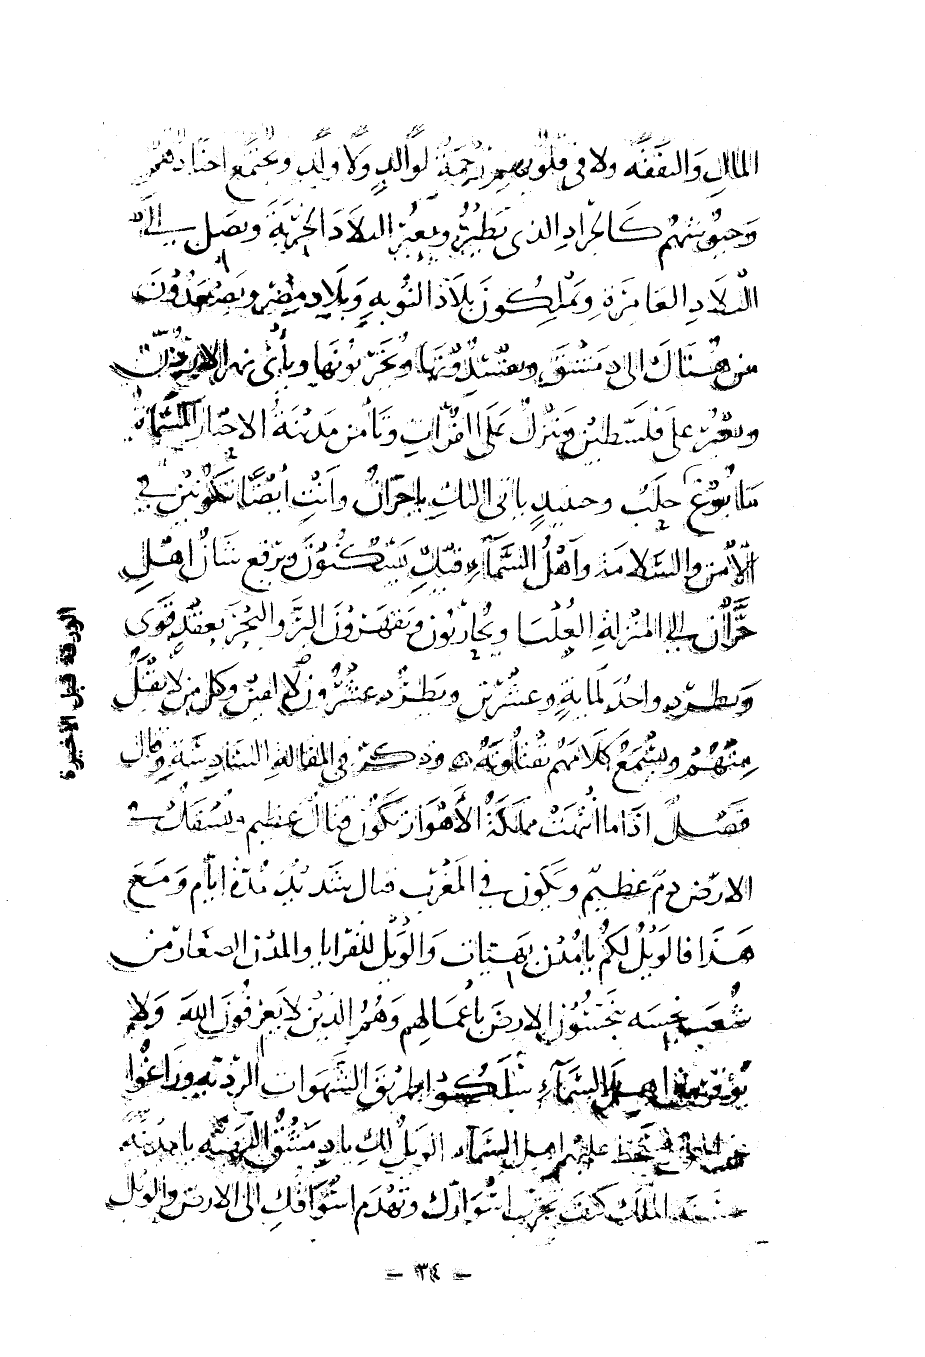 المال والنفقه ولا في قلوبهم رحمة لوالد ولا ولد ويجتمع اجنادهم
وجيوشهم كالجراد الذى يطير ويعبر البلاد الخربة ويصل الى
البلاد العامرة ويملكون بلاد النوبه وبلاد مصر ويصعدون
من هناك الى دمشق ويفسدونها ويخربونها ويأتى نهر الاردن
ويعبر على فلسطين وينزل على الفرات وتأمن مدينة الاحبار المسماة
مابوغ حلب وحينيد ياتى اليك ياحران وانت ايضا تكونين في
الأمن والسلامة واهل السماء فيك يسكنون ويرفع شان اهل
حران الى المنزلة العليا ويحاربون ويقهرون البر والبحر بعقد قوى
ويطرد واحد لماية وعشرين ويطرد عشرون لالفين وكل من لا يقبل
منهم ويسمع كلامهم يقتلونه وذكر في المقالة السادسة وقال
فصل اذا ما انتهت مملكة الأهواز تكون قتال عظيم ويسفك في
الارض دم عظيم ويكون في المغرب قتال شديد مدة ايام ومع
هذا فالويل لكم يا مدن بهتان والويل للقرايا والمدن الصغار من
شعب نجسه ينجسون الارض باعمالهم وهم الذين لا يعرفون الله ولا
اهل السماء سلكوا طريق الشهوات الردية وزاغوا
عن الحق يسخط عليهم اهل السماء الويل لك يا دمشق البهيه يا مدينة
الملك كيف يخرب اسوارك وتهدم اسواقك الى الارض والويل
الورقة قبل الأخيرة
– ٣٤ –